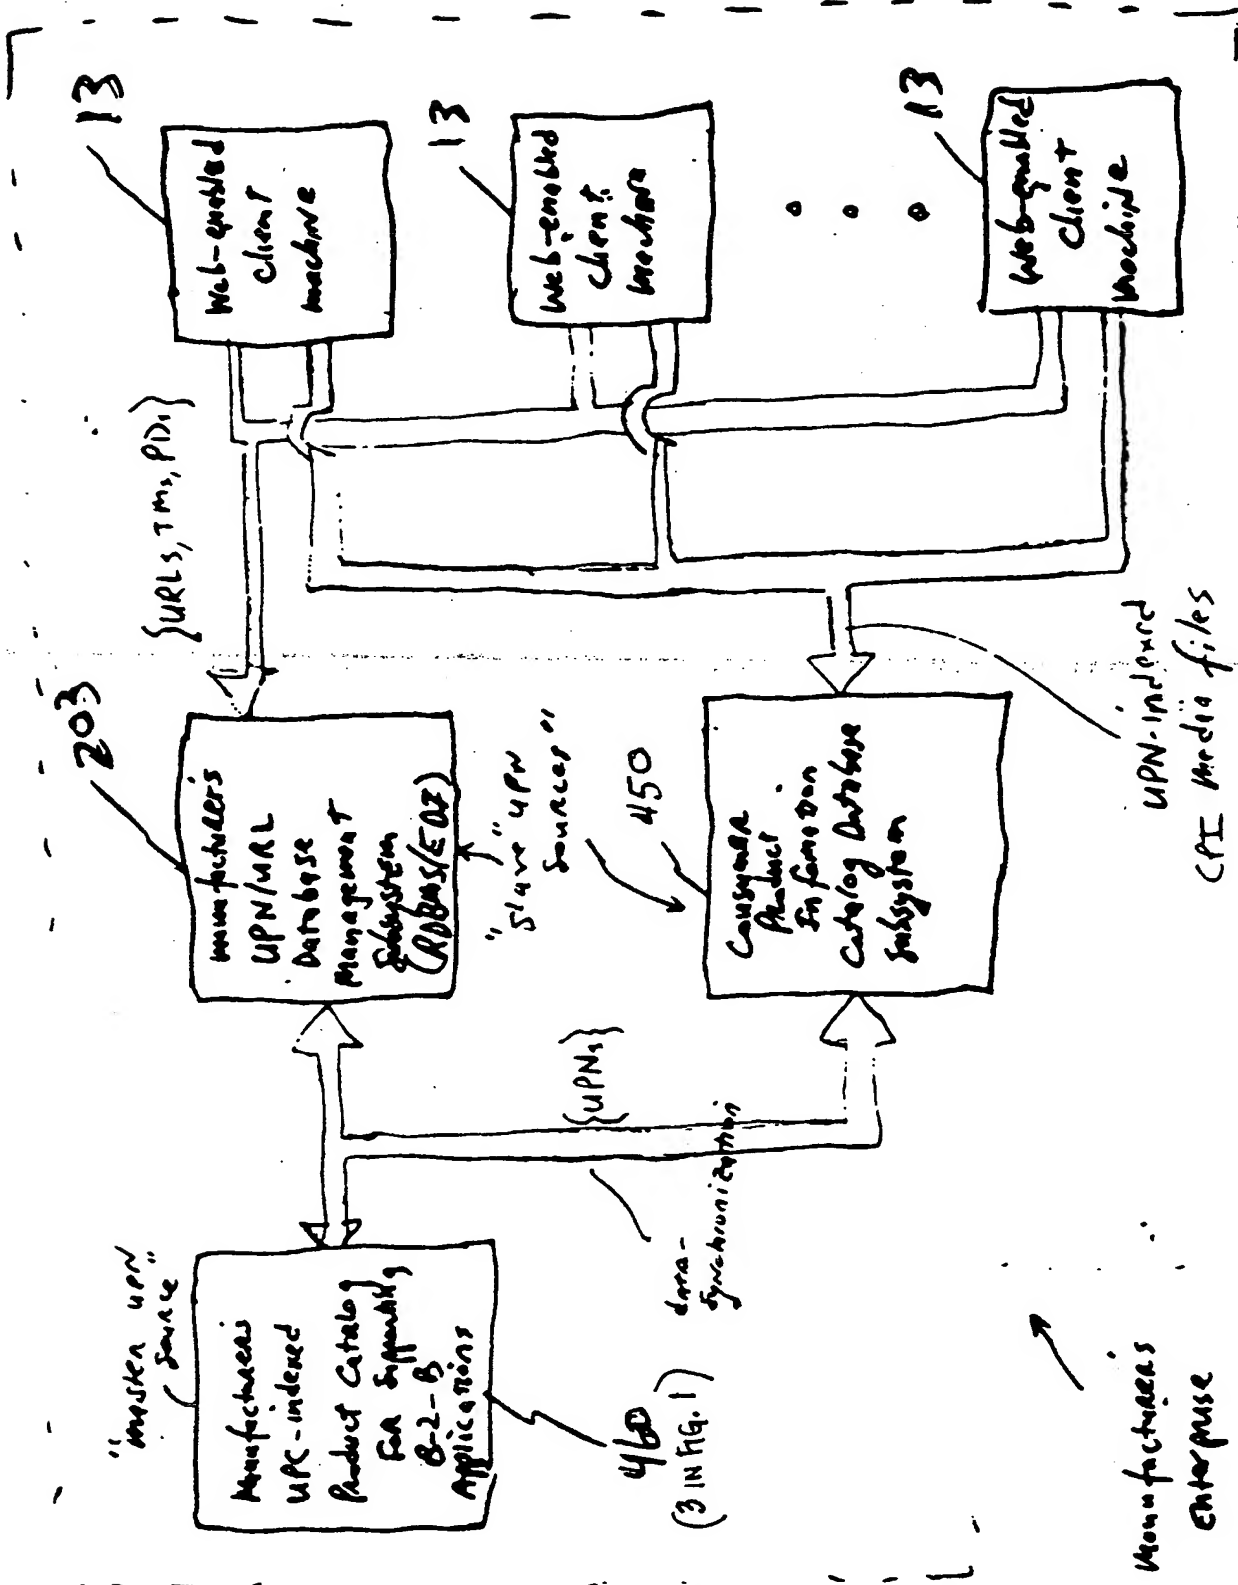 "master UPN
source"
Manufacturers
UPC-indexed
Product Catalog
For Supporting
B-2-B
Applications
460
(3 IN FIG. 1)
data-
synchronization
{UPNs}
203
manufacturer's
UPN/URL
Database
Management
Subsystem
(RDBMS/EDI)
"Slave" UPN
Sources"
450
Consumer
Product
Information
Catalog Database
Subsystem
{URLs, TMs, PDs}
UPN-indexed
CPI media files
13
Web-enabled
Client
machine
13
Web-enabled
Client
machine
13
Web-enabled
Client
Machine
Manufacturers
Enterprise